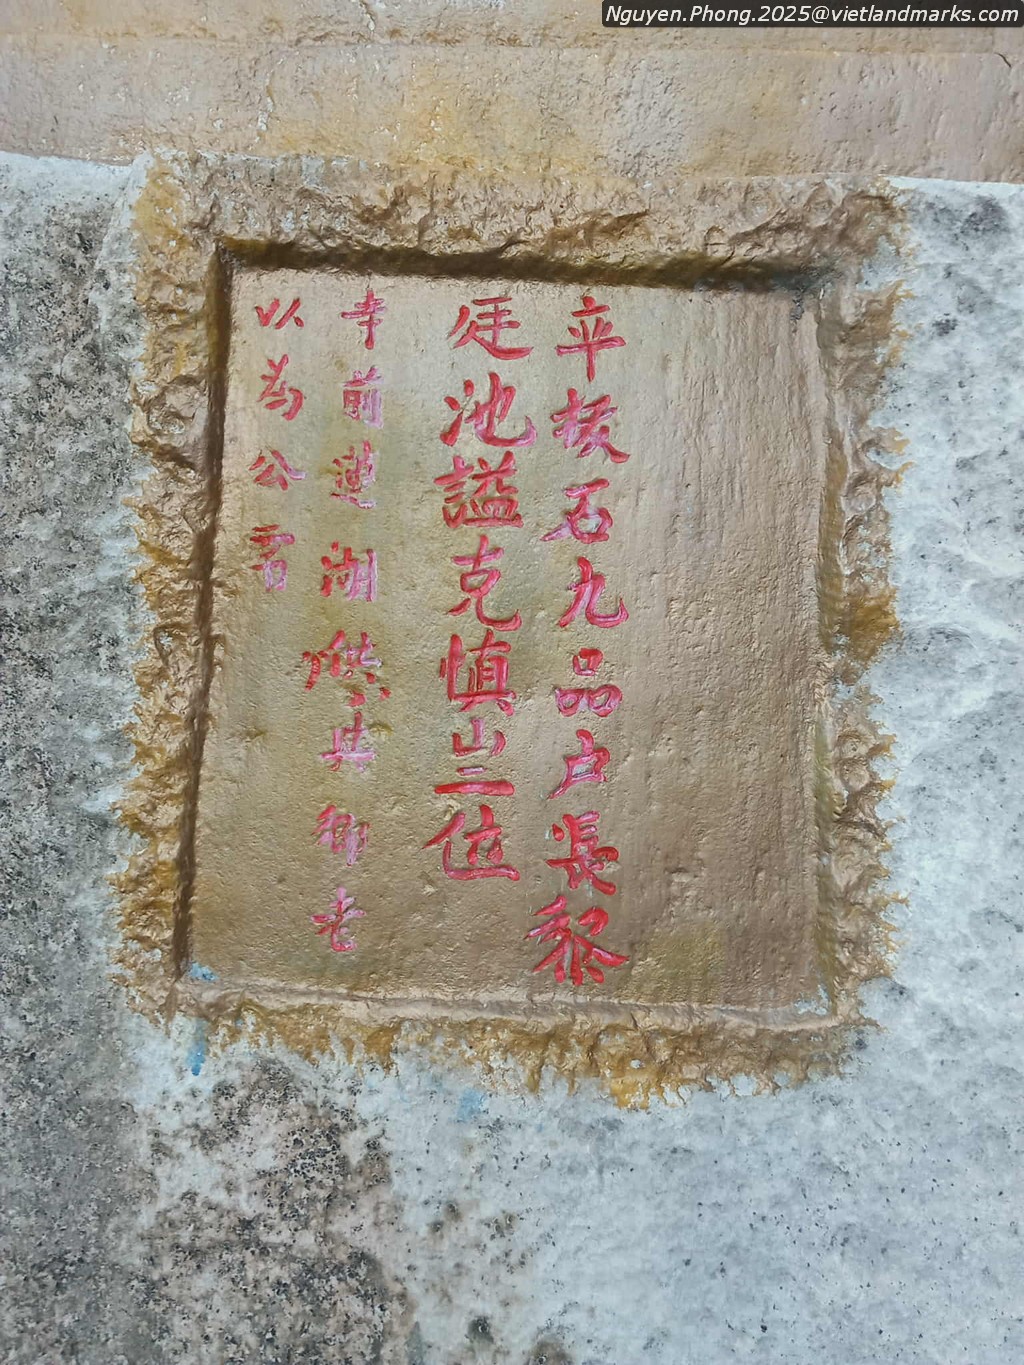 Nguyen.Phong.2025@vietlandmarks.com
平撥石九品户長黎
廷池謚克慎山三位
寺前蓮湖供與鄉老
以為公